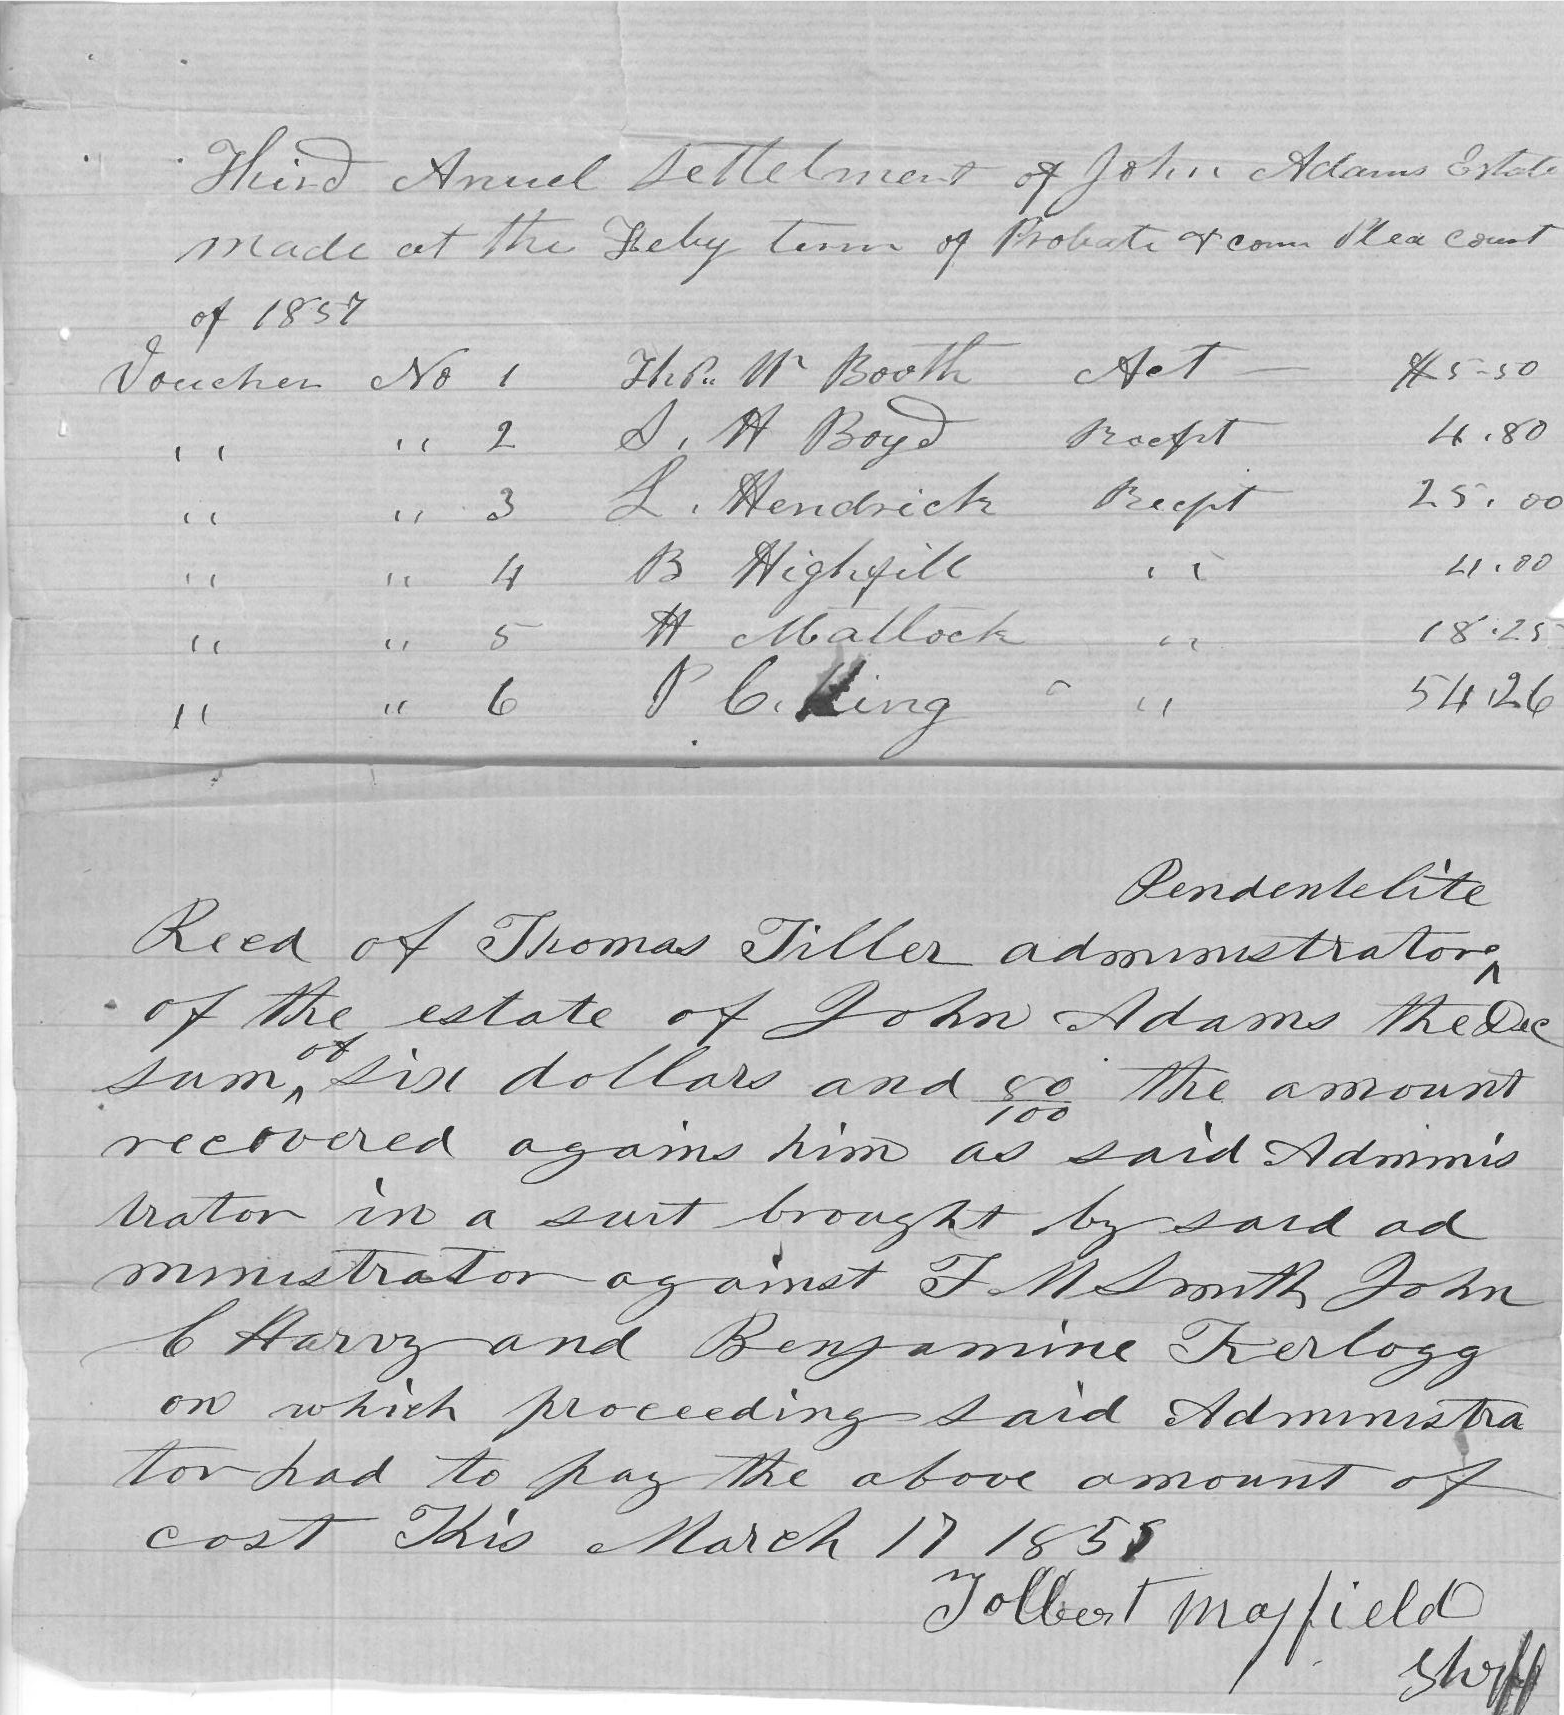 Third Anuel settelment of John Adams Estate
made at the Feby term of Probate & com Plea Court
of 1857
Voucher No 1 Thos. W Booth Act — $5-50
" " 2 S. H Boyd Recept 4.80
" " 3 L. Hendrick Recept 25.00
" " 4 B Highfill " 4.00
" " 5 H Matlock " 18.25
" " 6 P C. King " 54.26
Pendentelite
Recd of Thomas Tiller administrator
of the estate of John Adams Dec the
sum of six dollars and 80/100 the amount
recovered agains him as said Adminis
trator in a suit brought by said ad
ministrator against T M Smith John
C Harvy and Benjamine Kerlogg
on which proceeding said Administra
tor had to pay the above amount of
cost This March 17 185
Tolbert Mayfield
Shrff